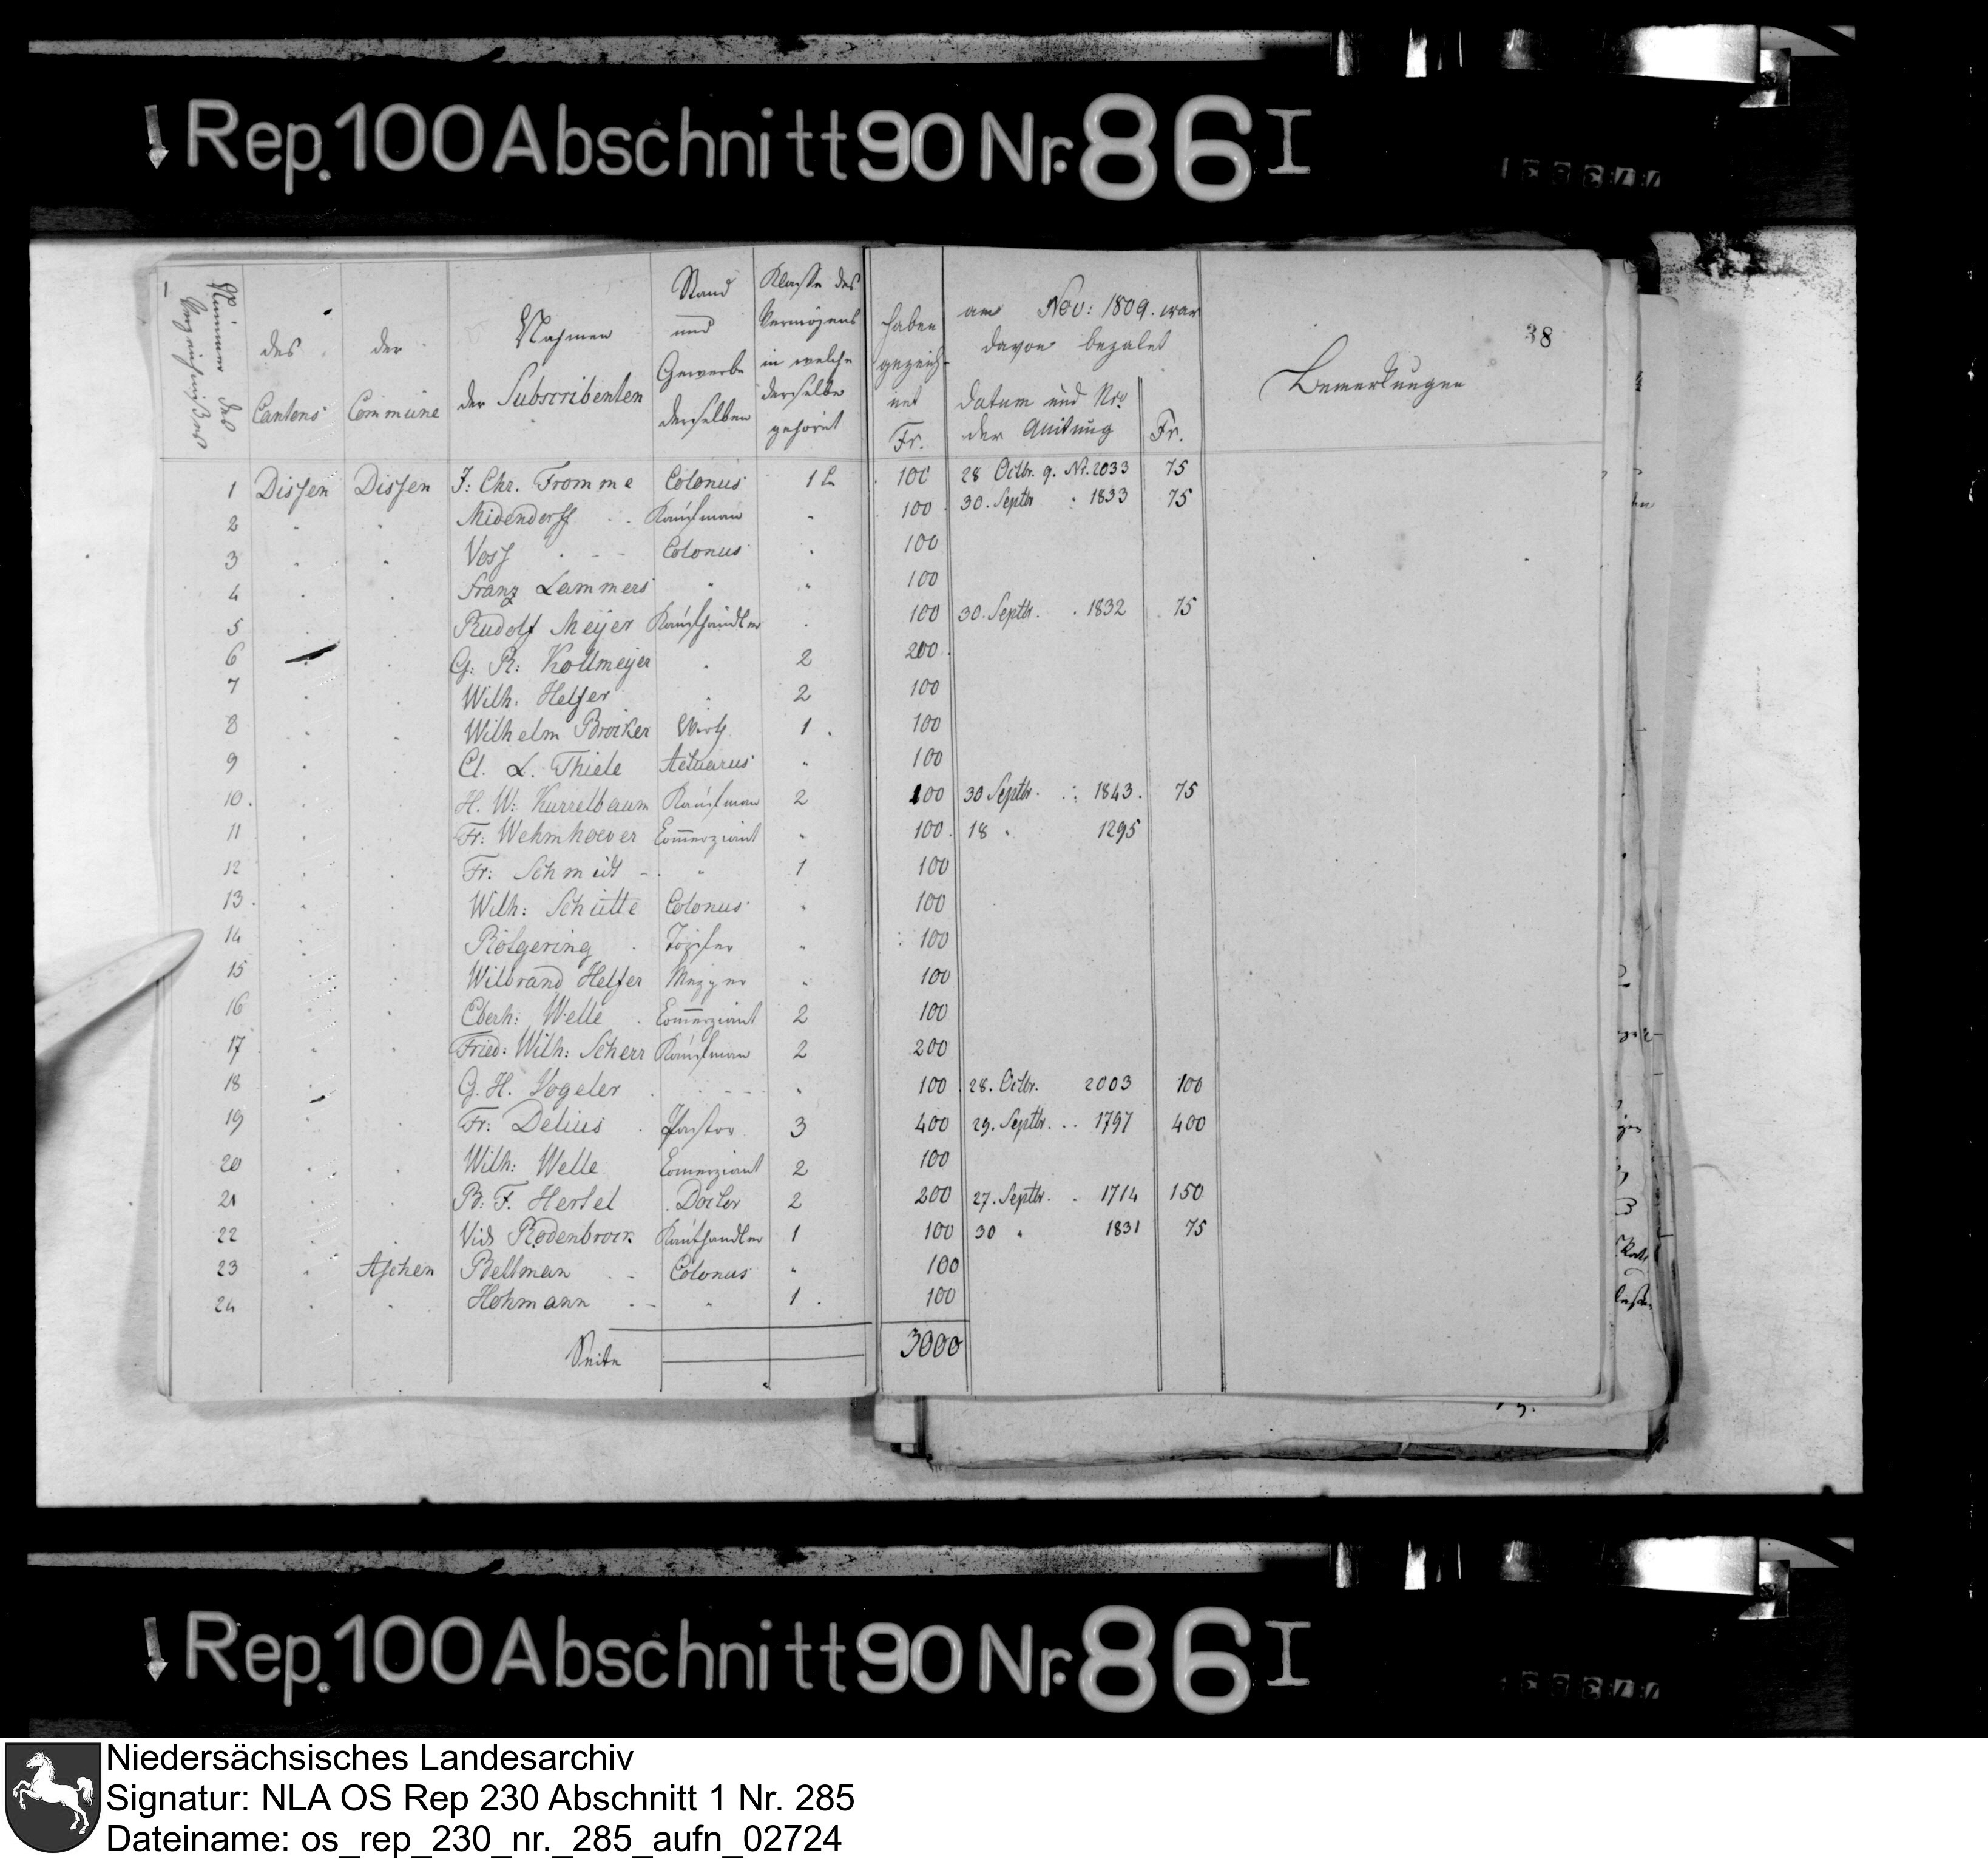 Rep. 100 Abschnitt 90 Nr. 86 I
38
Nummer des Verzeichnisses
des Cantons
der Commüne
Nahmen der Subscribenten
Stand und Gewerbe derselben
Klasse des Vermögens in welche derselbe gehöret
haben gezeichnet Fr.
am Nov: 1809. war davon bezalet
Datum und Nro der Quitung
Fr.
Bemerkungen
1 Dissen Dissen J: Chr. Fromme Colonus 1 100 28 Octbr. 9. Nr. 2033 75
2 " " Midendorff Kaufman " 100 30. Septbr : 1833 75
3 " " Voss Colonus " 100
4 " " Franz Lammers " " 100
5 " " Rudolf Meijer Kaufhändler " 100 30. Septbr. . 1832 75
6 " G: R: Kollmeijer " 2 200
7 " " Wilh. Helfer " 2 100
8 " " Wilhelm Bröcker Wirth 1 100
9 " " Cl. L. Thiele Actuarus " 100
10. " H. W: Kurrelbaum Kaufman 2 100 30 Septbr. 1843. 75
11 " " Fr: Wehmhoever Commerziant " 100. 18 " 1295
12 " " Fr: Schmidt - " 1 100
13. " " Wilh: Schütte Colonus " 100
14 " " Rötgering Töpfer " 100
15 " " Wilbrand Helfer Mezger " 100
16 " " Eberh: Welle Commerziant 2 100
17 " " Fried: Wilh: Scherr Kaufman 2 200
18 " G. H. Vogeler - - " 100 28. Octbr. 2003 100
19 " " Fr: Delius Pastor 3 400 29. Septbr. .. 1797 400
20 " " Wilh: Welle Commerziant 2 100
21 " " B: F. Hertel Doctor 2 200 27. Septbr. . 1714 150
22 " " Vid Rodenbrock Kaufhandler 1 100 30 " 1831 75
23 " Aschen Bellman - Colonus " 100
24 " " Hohmann - - " 1 . 100
Seite 3000
Rep. 100 Abschnitt 90 Nr. 86 I
Niedersächsisches Landesarchiv
Signatur: NLA OS Rep 230 Abschnitt 1 Nr. 285
Dateiname: os_rep_230_nr._285_aufn_02724